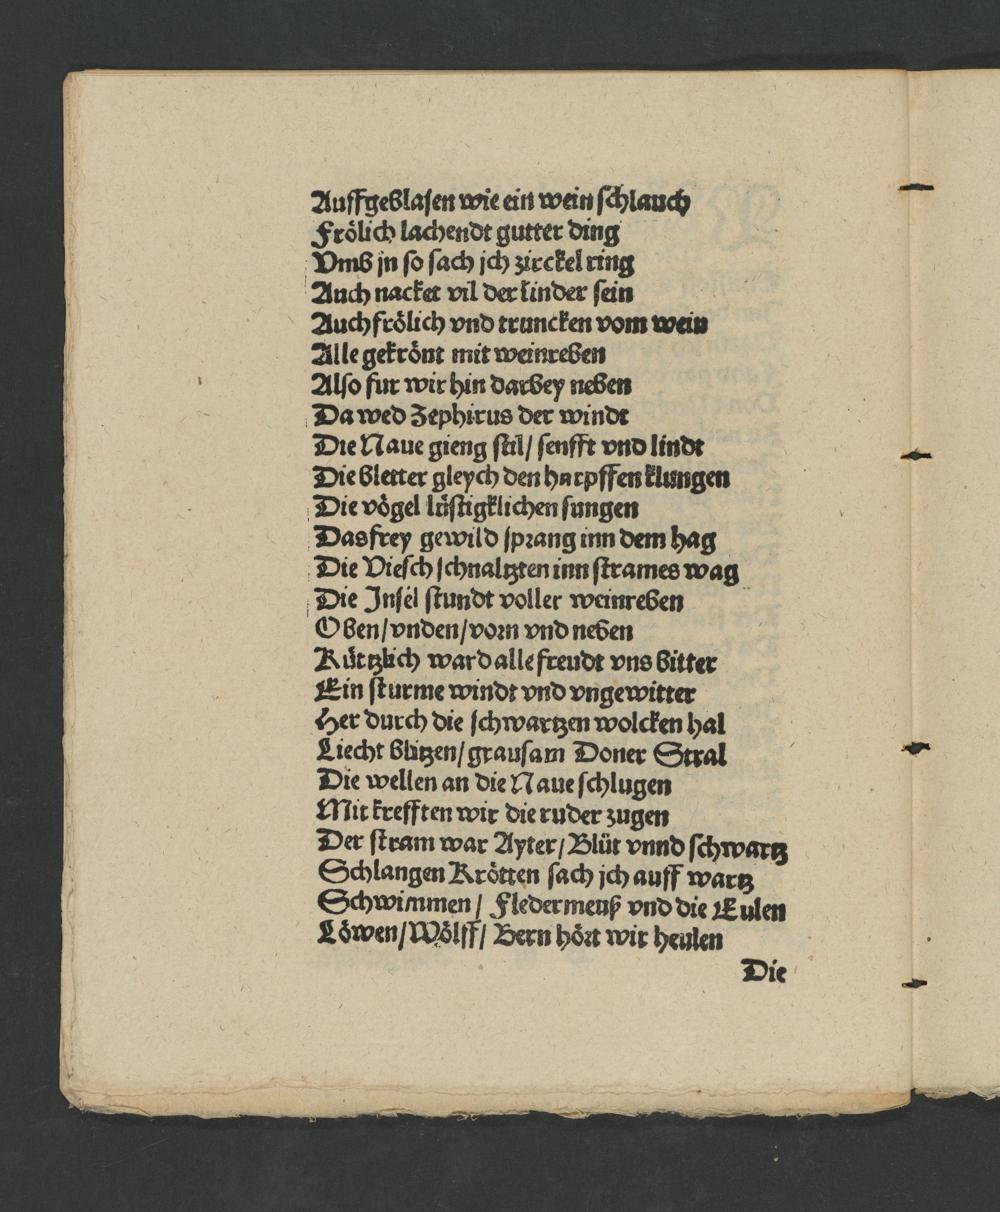 Auffgeblasen wie ein wein schlauch
Frölich lachendt gutter ding
Vmb jn so sach jch zirckel ring
Auch nacket vil der kinder sein
Auch frölich vnd truncken vom wein
Alle gekrönt mit weinreben
Also fur wir hin darbey neben
Da wed Zephirus der windt
Die Naue gieng stil/ senfft vnd lindt
Die bletter gleych den harpffen klungen
Die vögel lüstigklichen sungen
Das frey gewild sprang inn dem hag
Die Viesch schnaltzten inn strames wag
Die Jnsel stundt voller weinreben
Oben/vnden/vorn vnd neben
Kürtzlich ward alle freudt vns bitter
Ein sturme windt vnd vngewitter
Her durch die schwartzen wolcken hal
Liecht blitzen/grausam Doner Stral
Die wellen an die Naue schlugen
Mit krefften wir die ruder zugen
Der stram war Ayter/Blüt vnnd schwartz
Schlangen Krötten sach jch auff wartz
Schwimmen/ Fledermeuß vnd die Eulen
Löwen/Wölff/ Bern hört wir heulen
Die